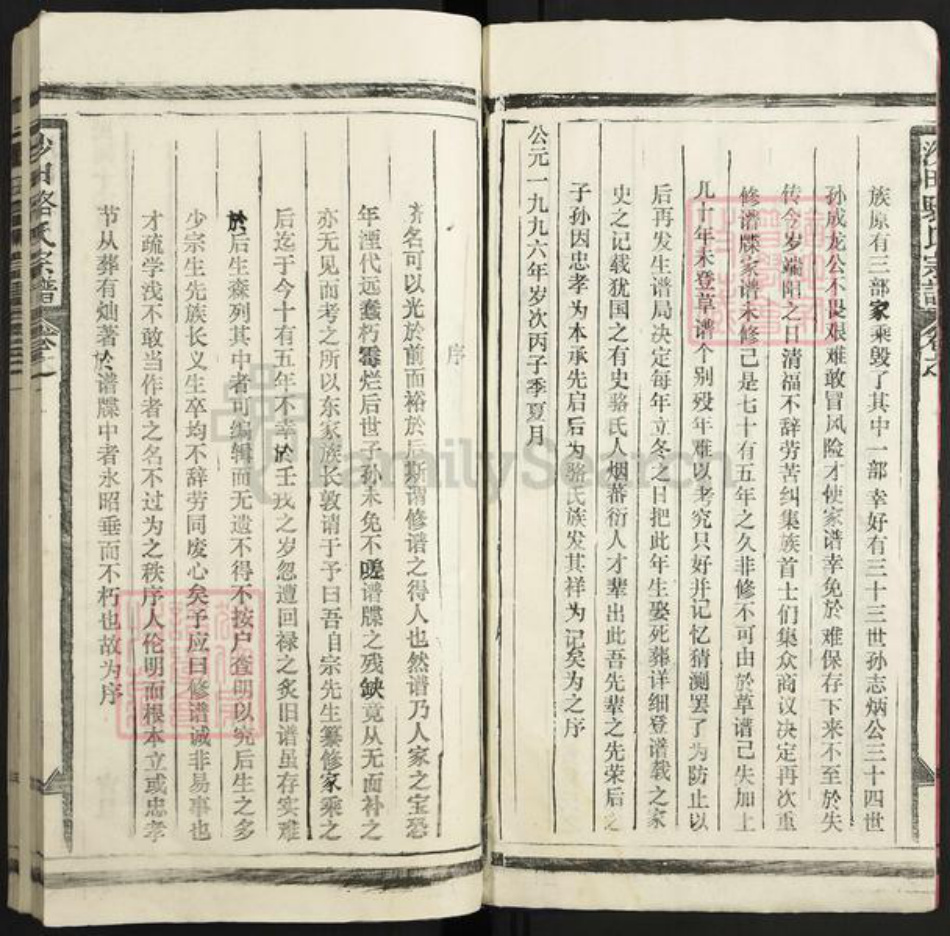 族原有三部家乘毁了其中一部幸好有三十三世孙志炳公三十四世
孙成龙公不畏艰难敢冒风险才使家谱幸免於难保存下来不至於失
传今岁端阳之日清福不辞劳苦纠集族首士们集众商议决定再次重
修谱牒家谱未修己是七十有五年之久非修不可由於草谱己失加上
几十年未登草谱个别殁年难以考究只好并记忆猜测罢了为防止以
后再发生谱局决定每年立冬之日把此年生娶死葬详细登谱载之家
史之记载犹国之有史骆氏人烟蕃衍人才辈出此吾先辈之先荣后之
子孙因忠孝为本承先启后为骆氏族发其祥为记矣为之序
公元一九九六年岁次丙子季夏月
序
名可以光於前而裕於后斯谓修谱之得人也然谱乃人家之宝恐
年湮代远蠹朽霉烂后世子孙未免不嗟谱牒之残缺竟从无面补之
亦无见而考之所以东家族长敦请于予曰吾自宗先生纂修家乘之
后迄于今十有五年不幸於壬戌之岁忽遭回禄之炙旧谱虽存实难
於后生森列其中者可编辑而无遗不得不按户查明以究后生之多
少宗生先族长义生卒均不辞劳同废心矣予应曰修谱诚非易事也
才疏学浅不敢当作者之名不过为之秩序人伦明而根本立或忠孝
节从葬有灿著於谱牒中者永昭垂而不朽也故为序
沙田骆氏宗谱
FamilySearch